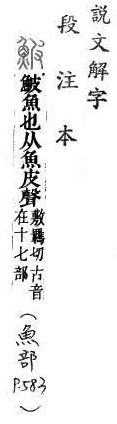 說文解字
段注本
鮍 鮍魚也从魚皮聲
敷羈切古音
在十七部
(魚部 P.583)